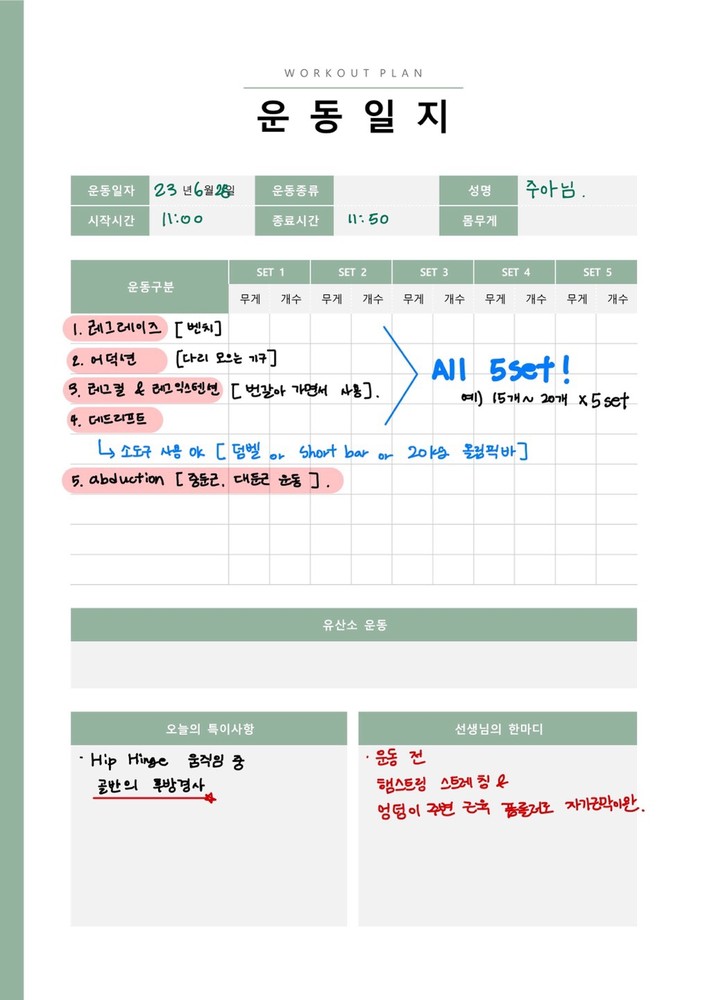 WORKOUT PLAN
운동일지
운동일자 23년 6월 28일 운동종류 성명 주아님.
시작시간 11:00 종료시간 11:50 몸무게
운동구분 SET 1 SET 2 SET 3 SET 4 SET 5
무게 개수 무게 개수 무게 개수 무게 개수 무게 개수
1. 레그레이즈 [벤치]
2. 어덕션 [다리 모으는 기구]
All 5set!
3. 레그컬 & 레그익스텐션 [번갈아 가면서 사용].
예) 15개~20개 x 5set
4. 데드리프트
↳ 소도구 사용 OK [덤벨 or short bar or 20kg 올림픽바]
5. abduction [중둔근, 대둔근 운동].
유산소 운동
오늘의 특이사항
· Hip Hinge 움직임 중
골반의 후방경사
선생님의 한마디
· 운동 전
햄스트링 스트레칭 &
엉덩이 주변 근육 폼롤러로 자가근막이완.